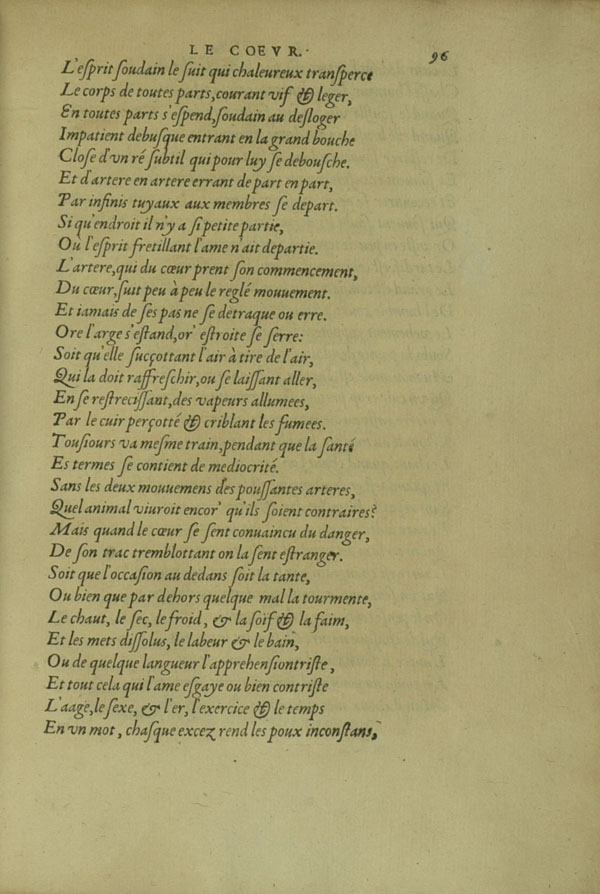 LE COEVR.
96
L'eſprit ſoudain le ſuit qui chaleureux tranſperce
Le corps de toutes parts, courant vif & leger,
En toutes parts s'eſpend, ſoudain au deſloger
Impatient debuſque entrant en la grand bouche
Cloſe d'vn ré ſubtil qui pour luy ſe debouſche.
Et d'artere en artere errant de part en part,
Par infinis tuyaux aux membres ſe depart.
Si qu'endroit il n'y a ſi petite partie,
Ou l'eſprit fretillant l'ame n'ait departie.
L'artere, qui du cœur prent ſon commencement,
Du cœur, ſuit peu à peu le reglé mouuement.
Et iamais de ſes pas ne ſe detraque ou erre.
Ore l'arge s'eſtand, or' eſtroite ſe ſerre:
Soit qu'elle ſucçottant l'air à tire de l'air,
Qui la doit raffreſchir, ou ſe laiſſant aller,
En ſe reſtreciſſant, des vapeurs allumees,
Par le cuir perçotté & criblant les fumees.
Touſiours va meſme train, pendant que la ſanté
Es termes ſe contient de mediocrité.
Sans les deux mouuemens des pouſſantes arteres,
Quel animal viuroit encor' qu'ils ſoient contraires?
Mais quand le cœur ſe ſent conuaincu du danger,
De ſon trac tremblottant on la ſent eſtranger.
Soit que l'occaſion au dedans ſoit la tante,
Ou bien que par dehors quelque mal la tourmente,
Le chaut, le ſec, le froid, & la ſoif & la faim,
Et les mets diſſolus, le labeur & le bain,
Ou de quelque langueur l'apprehenſion triſte,
Et tout cela qui l'ame eſgaye ou bien contriſte
L'aage, le ſexe, & l'er, l'exercice & le temps
En vn mot, chaſque excez rend les poux inconſtans,